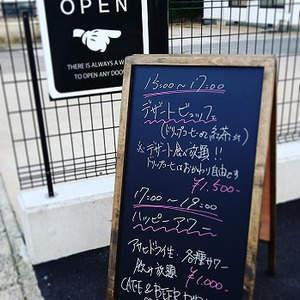 OPEN
THERE IS ALWAYS A WA
TO OPEN ANY DOO
15:00~17:00
デザートビュッフェ
(ドリップコーヒーor紅茶付)
※デザート食べ放題!!
ドリップコーヒーはおかわり自由です
¥1,500-
17:00~19:00
ハッピーアワー
アサヒドライ生・各種サワー
飲み放題 ¥1,000-
CAFE & BEER